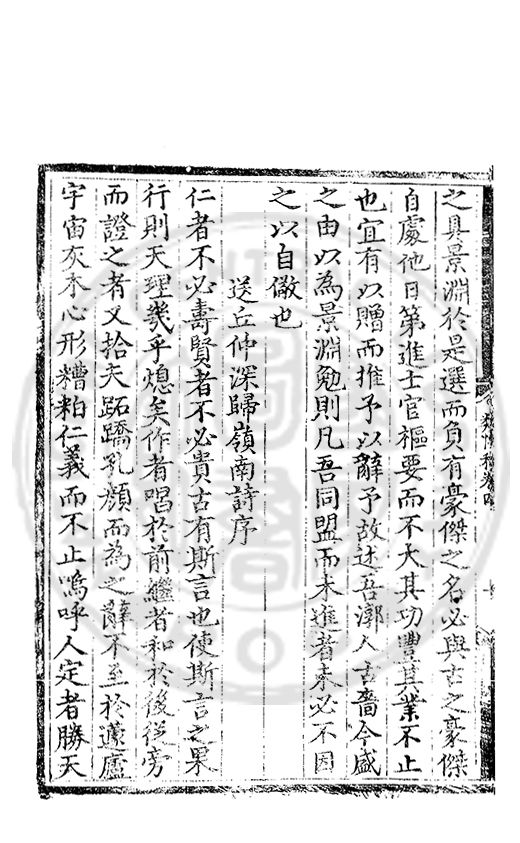 之具景淵於是選而負有豪傑之名必與古之豪傑
自處他日第進士官樞要而不大其功豐其業不止
也宜有以贈而推予以辭予故述吾漳人古嗇今盛
之由以為景淵勉則凡吾同盟而未進者未必不因
之以自儆也
送丘仲深歸嶺南詩序
仁者不必壽賢者不必貴古有斯言也使斯言之果
行則天理幾乎熄矣作者唱於前繼者和於後從旁
而證之者又拾夫跖蹻孔顏而為之辭不至於蘧廬
宇宙灰木心形糟粕仁義而不止嗚呼人定者勝天